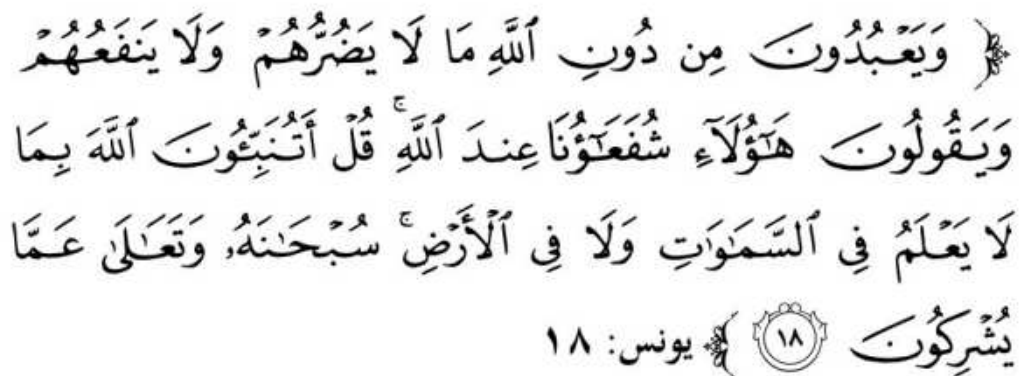 ﴿ وَيَعْبُدُونَ مِن دُونِ ٱللَّهِ مَا لَا يَضُرُّهُمْ وَلَا يَنفَعُهُمْ
وَيَقُولُونَ هَٰٓؤُلَآءِ شُفَعَٰٓؤُنَا عِندَ ٱللَّهِ ۚ قُلْ أَتُنَبِّـُٔونَ ٱللَّهَ بِمَا
لَا يَعْلَمُ فِى ٱلسَّمَٰوَٰتِ وَلَا فِى ٱلْأَرْضِ ۚ سُبْحَٰنَهُۥ وَتَعَٰلَىٰ عَمَّا
يُشْرِكُونَ ١٨ ﴾ يونس: ١٨